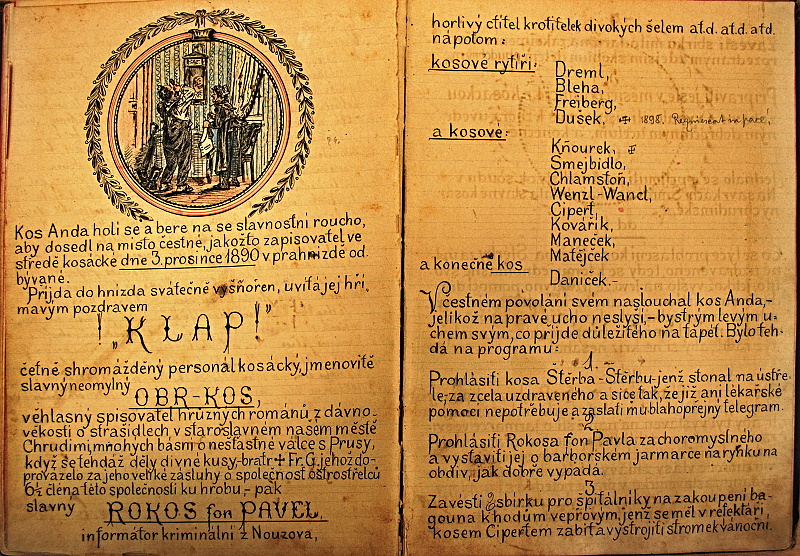 Kos Anda holí se a bere na se slavnostní roucho,
aby dosedl na místo čestné, jakožto zapisovatel ve
středě kosácké dne 3. prosince 1890 v prahnízdě od-
bývané.
Přijda do hnízda svátečně vyšňořen, uvítá jej hři-
mavým pozdravem
! „KLAP!"
četně shromážděný personál kosácký, jmenovitě
slavný neomylný
OBR-KOS,
věhlasný spisovatel hrůzných románů z dávno-
věkosti o strašidlech v staroslavném našem městě
Chrudimi, mnohých básní o nešťastné válce s Prusy,
když se tehdáž děly divné kusy, - bratr ✝ Fr. G. jehož do-
provázelo za jeho veliké zásluhy o společnost ostrostřelců
6½ člena této společnosti ku hrobu, - pak
slavný
ROKOS fon PAVEL,
informátor kriminální z Nouzova,
horlivý ctitel krotitelek divokých šelem atd. atd. atd.
na potom:
kosové rytíři:
Dreml,
Bleha,
Frejberg,
Dušek, ✠ 1898. Requiescat in pace!
a kosové:
Kňourek, ✠
Smejbidlo,
Chlamstoň,
Wenzl-Wancl,
Cipert,
Kovářík,
Maneček,
Matějček
a konečně kos
Daníček.-
V čestném povolání svém naslouchal kos Anda,-
jelikož na pravé ucho neslyší, - bystrým levým u-
chem svým, co přijde důležitého na tapét. Bylo teh-
dá na programu:
1.
Prohlásiti kosa Štěrba-Štěrbu-jenž stonal na ústře-
le, za zcela uzdraveného a sice tak, že již ani lékařské
pomoci nepotřebuje a zaslati mu blahopřejný telegram.
2.
Prohlásiti Rokosa fon Pavla za choromyslného
a vystaviti jej o barborském jarmarce na rynku na
obdiv, jak dobře vypadá.
3.
Zavésti sbírku pro špitálníky na zakoupení ba-
gouna k hodům vepřovým, jenž se měl v refektáři,
kosem Cipertem zabít a vystrojiti stromek vánoční.